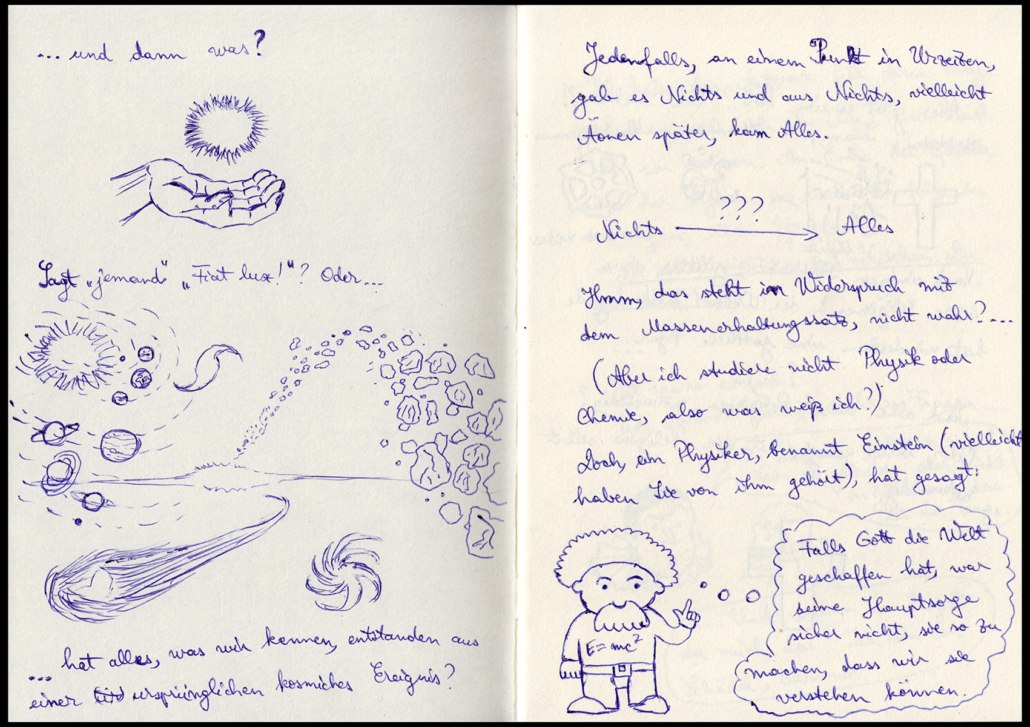 ... und dann was?
Sagt „jemand“ „Fiat lux!“? Oder...
hat alles, was wir kennen, entstanden aus
...
einer ursprünglichen kosmiches Ereignis?
Jedenfalls, an einem Punkt in Urzeizen,
gab es Nichts und aus Nichts, vielleicht
Äonen später, kam Alles.
???
Nichts → Alles
Hmm, das steht im Widerspruch mit
dem Massenerhaltungssatz, nicht wahr?...
(Aber ich studiere nicht Physik oder
Chemie, also was weiß ich?)
Doch, ein Physiker, benannt Einstein (vielleicht
haben Sie von ihm gehört), hat gesagt:
Falls Gott die Welt
geschaffen hat, war
seine Hauptsorge
sicher nicht, sie so zu
machen, dass wir sie
verstehen können.
E=mc²